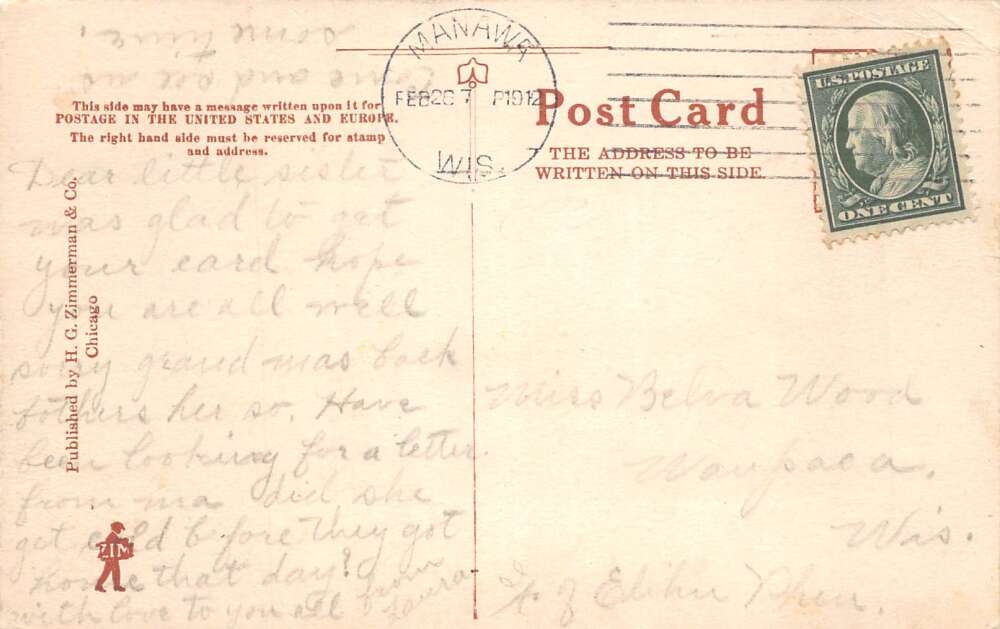 come and see us
some time.
This side may have a message written upon it for
POSTAGE IN THE UNITED STATES AND EUROPE.
The right hand side must be reserved for stamp
and address.
Dear little sister
was glad to get
your card hope
you are all well
sorry grand mas back
bothers her so. Have
been looking for a letter
from ma did she
get cold before they got
home that day?
with love to you all from
Laura
Published by H. G. Zimmerman & Co.
Chicago
ZIM
MANAWA
FEB 26 7 P 1912
WIS.
Post Card
THE ADDRESS TO BE
WRITTEN ON THIS SIDE.
U.S. POSTAGE
ONE CENT
Miss Belva Wood
Waupaca.
Wis.
of Elihu